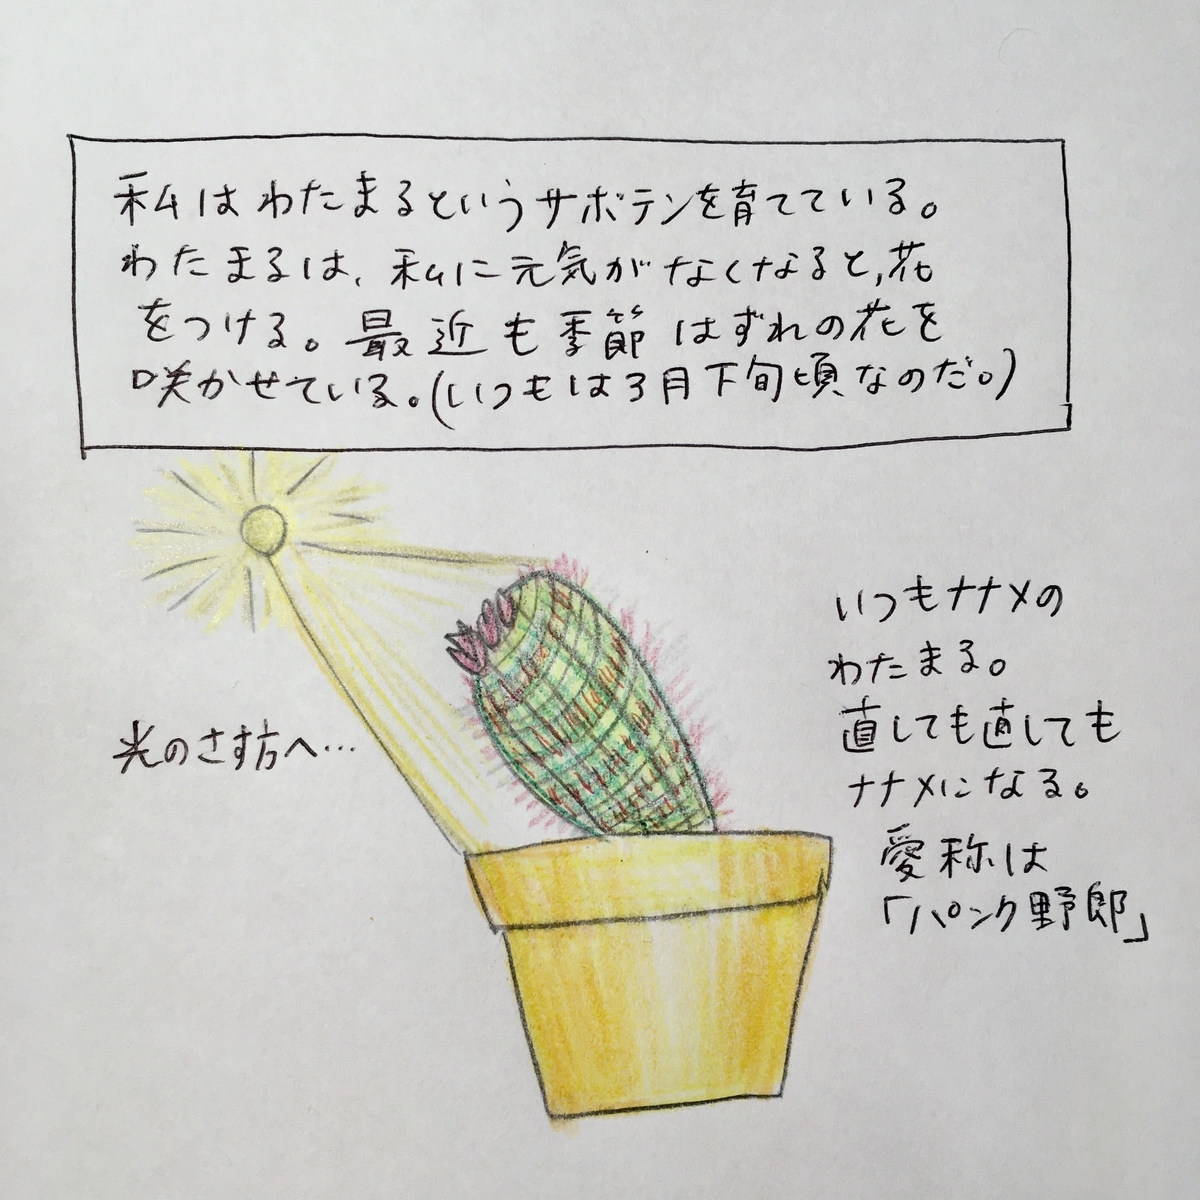 私はわたまるというサボテンを育てている。
わたまるは、私に元気がなくなると、花
をつける。最近も季節はずれの花を
咲かせている。(いつもは3月下旬頃なのだ。)
いつもナナメの
わたまる。
直しても直しても
ナナメになる。
愛称は
「パンク野郎」
光のさす方へ…